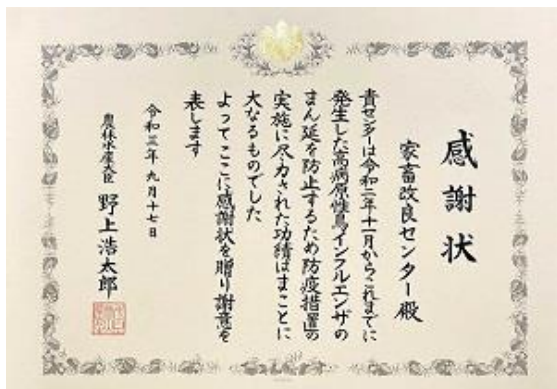 感謝状
家畜改良センター殿
貴センターは令和二年十一月からこれまでに
発生した高病原性鳥インフルエンザの
まん延を防止するため防疫措置の
実施に尽力された功績はまことに
大なるものでした
よってここに感謝状を贈り謝意を
表します
令和三年九月十七日
農林水産大臣 野上浩太郎